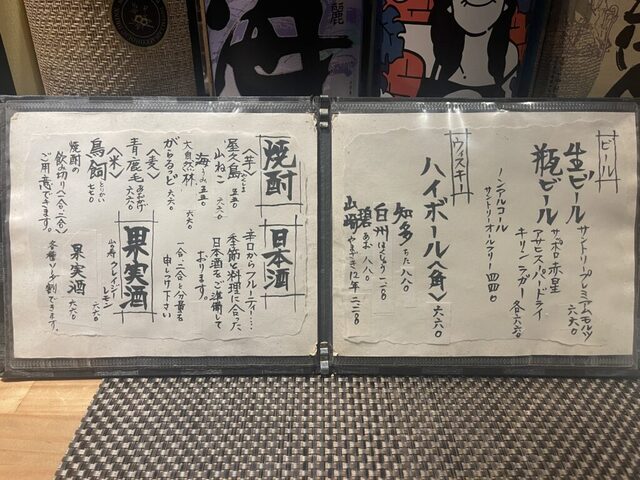 ビール
生ビール
サントリープレミアムモルツ
六六〇
瓶ビール
サッポロ赤星
アサヒスーパードライ
キリンラガー 各六六〇
ノンアルコール
サントリーオールフリー 四四〇
ウィスキー
ハイボール〈角〉 六六〇
知多 ちた 八八〇
白州 はくしゅう
碧 あお 八八〇
山崎 やまざき 12年
焼酎
〈芋〉
屋久島 五五〇
山ねこ 六六〇
海 うみ 五五〇
大自然林 六六〇
がらるっど 六六〇
〈麦〉
青鹿毛 あおかげ 六六〇
〈米〉
鳥飼 とりかい 七七〇
焼酎の
飲み切り(一合、二合)
ご用意できます。
日本酒
辛口からフルーティー…
季節と料理に合った
日本酒をご準備して
おります。
一合、二合と分量も
申しつけ下さい
果実酒
レモン
六六〇
果実酒
六六〇
各種ソーダ割できます。
海
麗